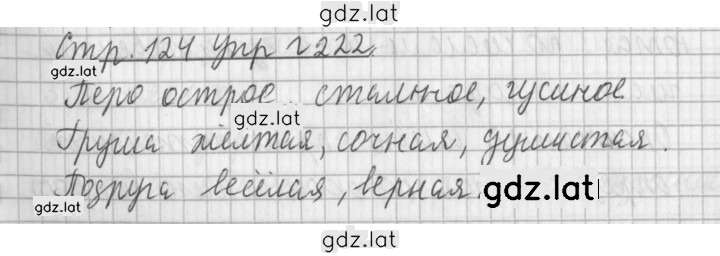 gdz.lat
Стр. 124 упр г 222
gdz.lat
Перо острое стальное, гусиное
gdz.lat
Груша жёлтая, сочная, душистая.
Подруга весёлая, верная gdz.lat
gdz.lat
gdz.lat